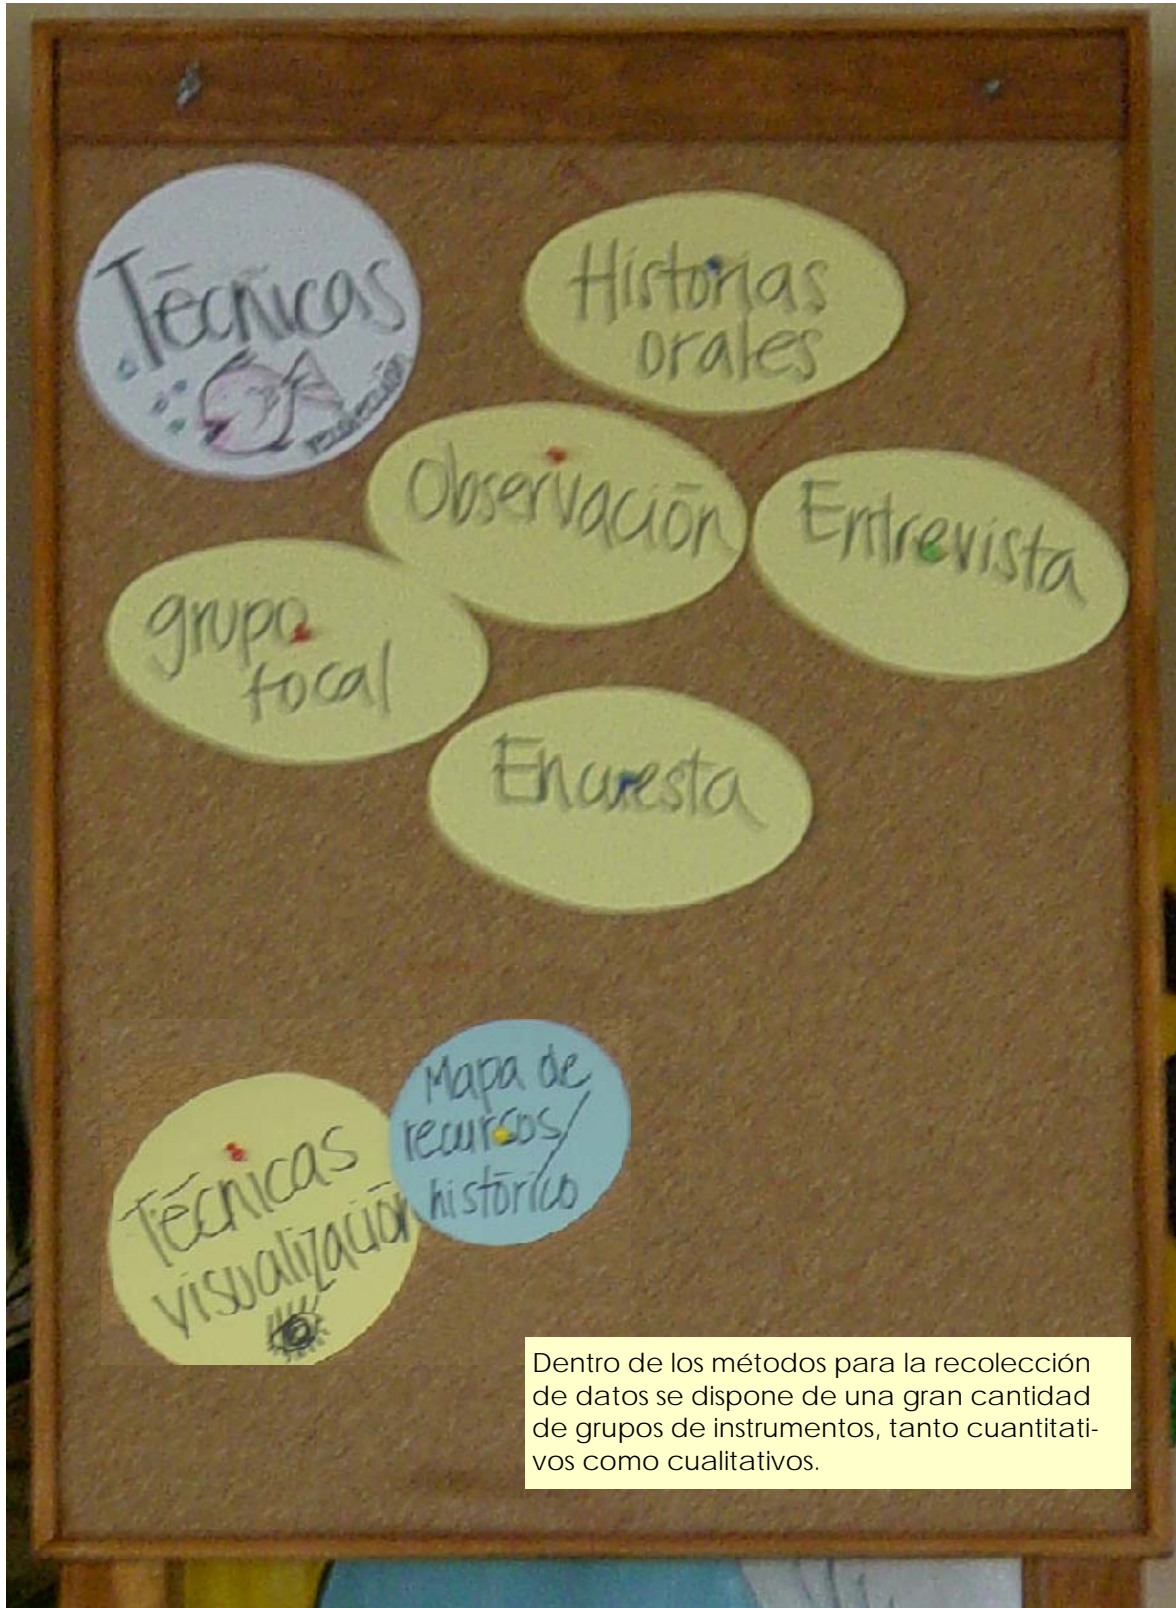 Técnicas
recolección
Historias
orales
Observación
Entrevista
grupo
focal
Encuesta
Mapa de
recursos/
histórico
Técnicas
visualización
Dentro de los métodos para la recolección
de datos se dispone de una gran cantidad
de grupos de instrumentos, tanto cuantitati-
vos como cualitativos.